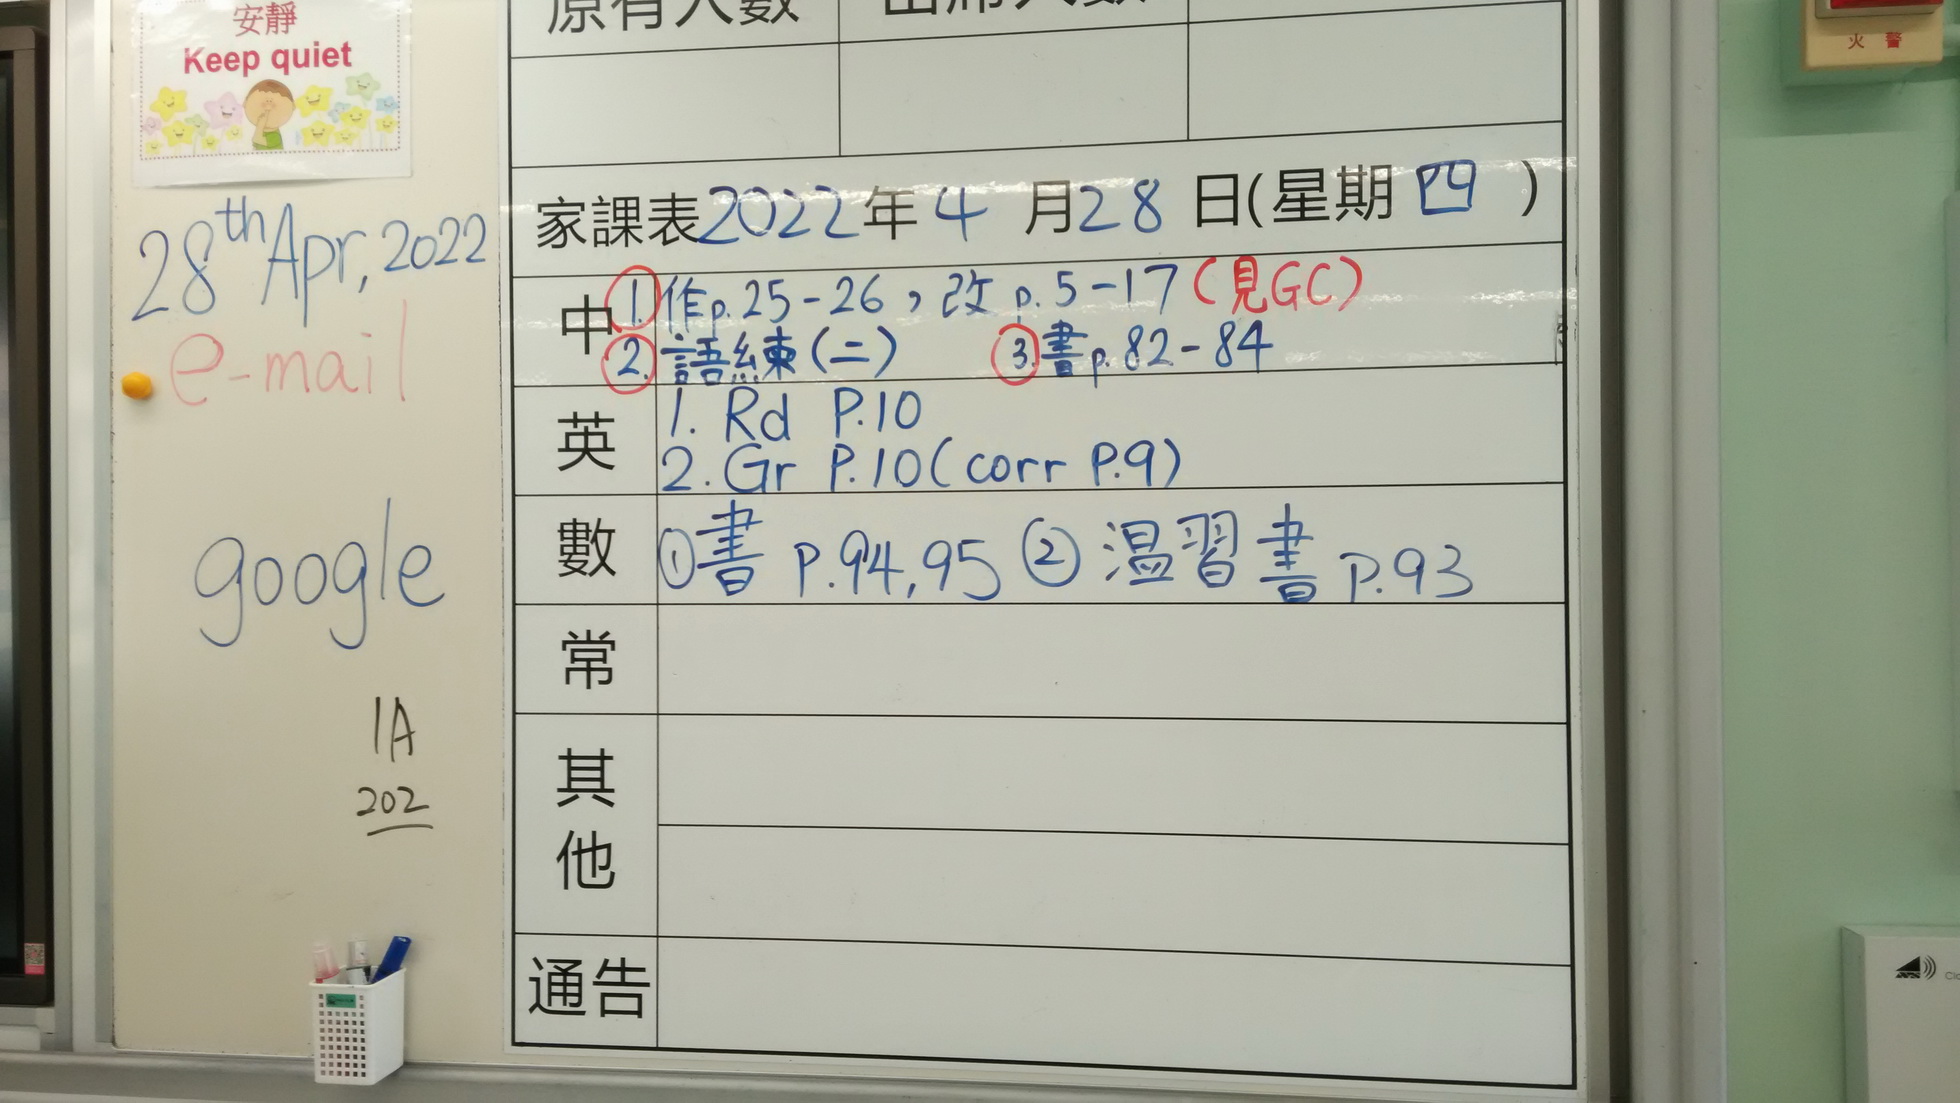 安靜
Keep quiet
28th Apr, 2022
e-mail
google
1A
202
原有人數 出席人數
家課表2022年4月28日(星期四)
中 1. 作p.25-26,改p.5-17(見GC)
2. 語練(二) 3. 書p.82-84
英 1. Rd P.10
2. Gr P.10(corr P.9)
數 ①書 P.94,95 ②温習書 P.93
常
其他
通告
火警